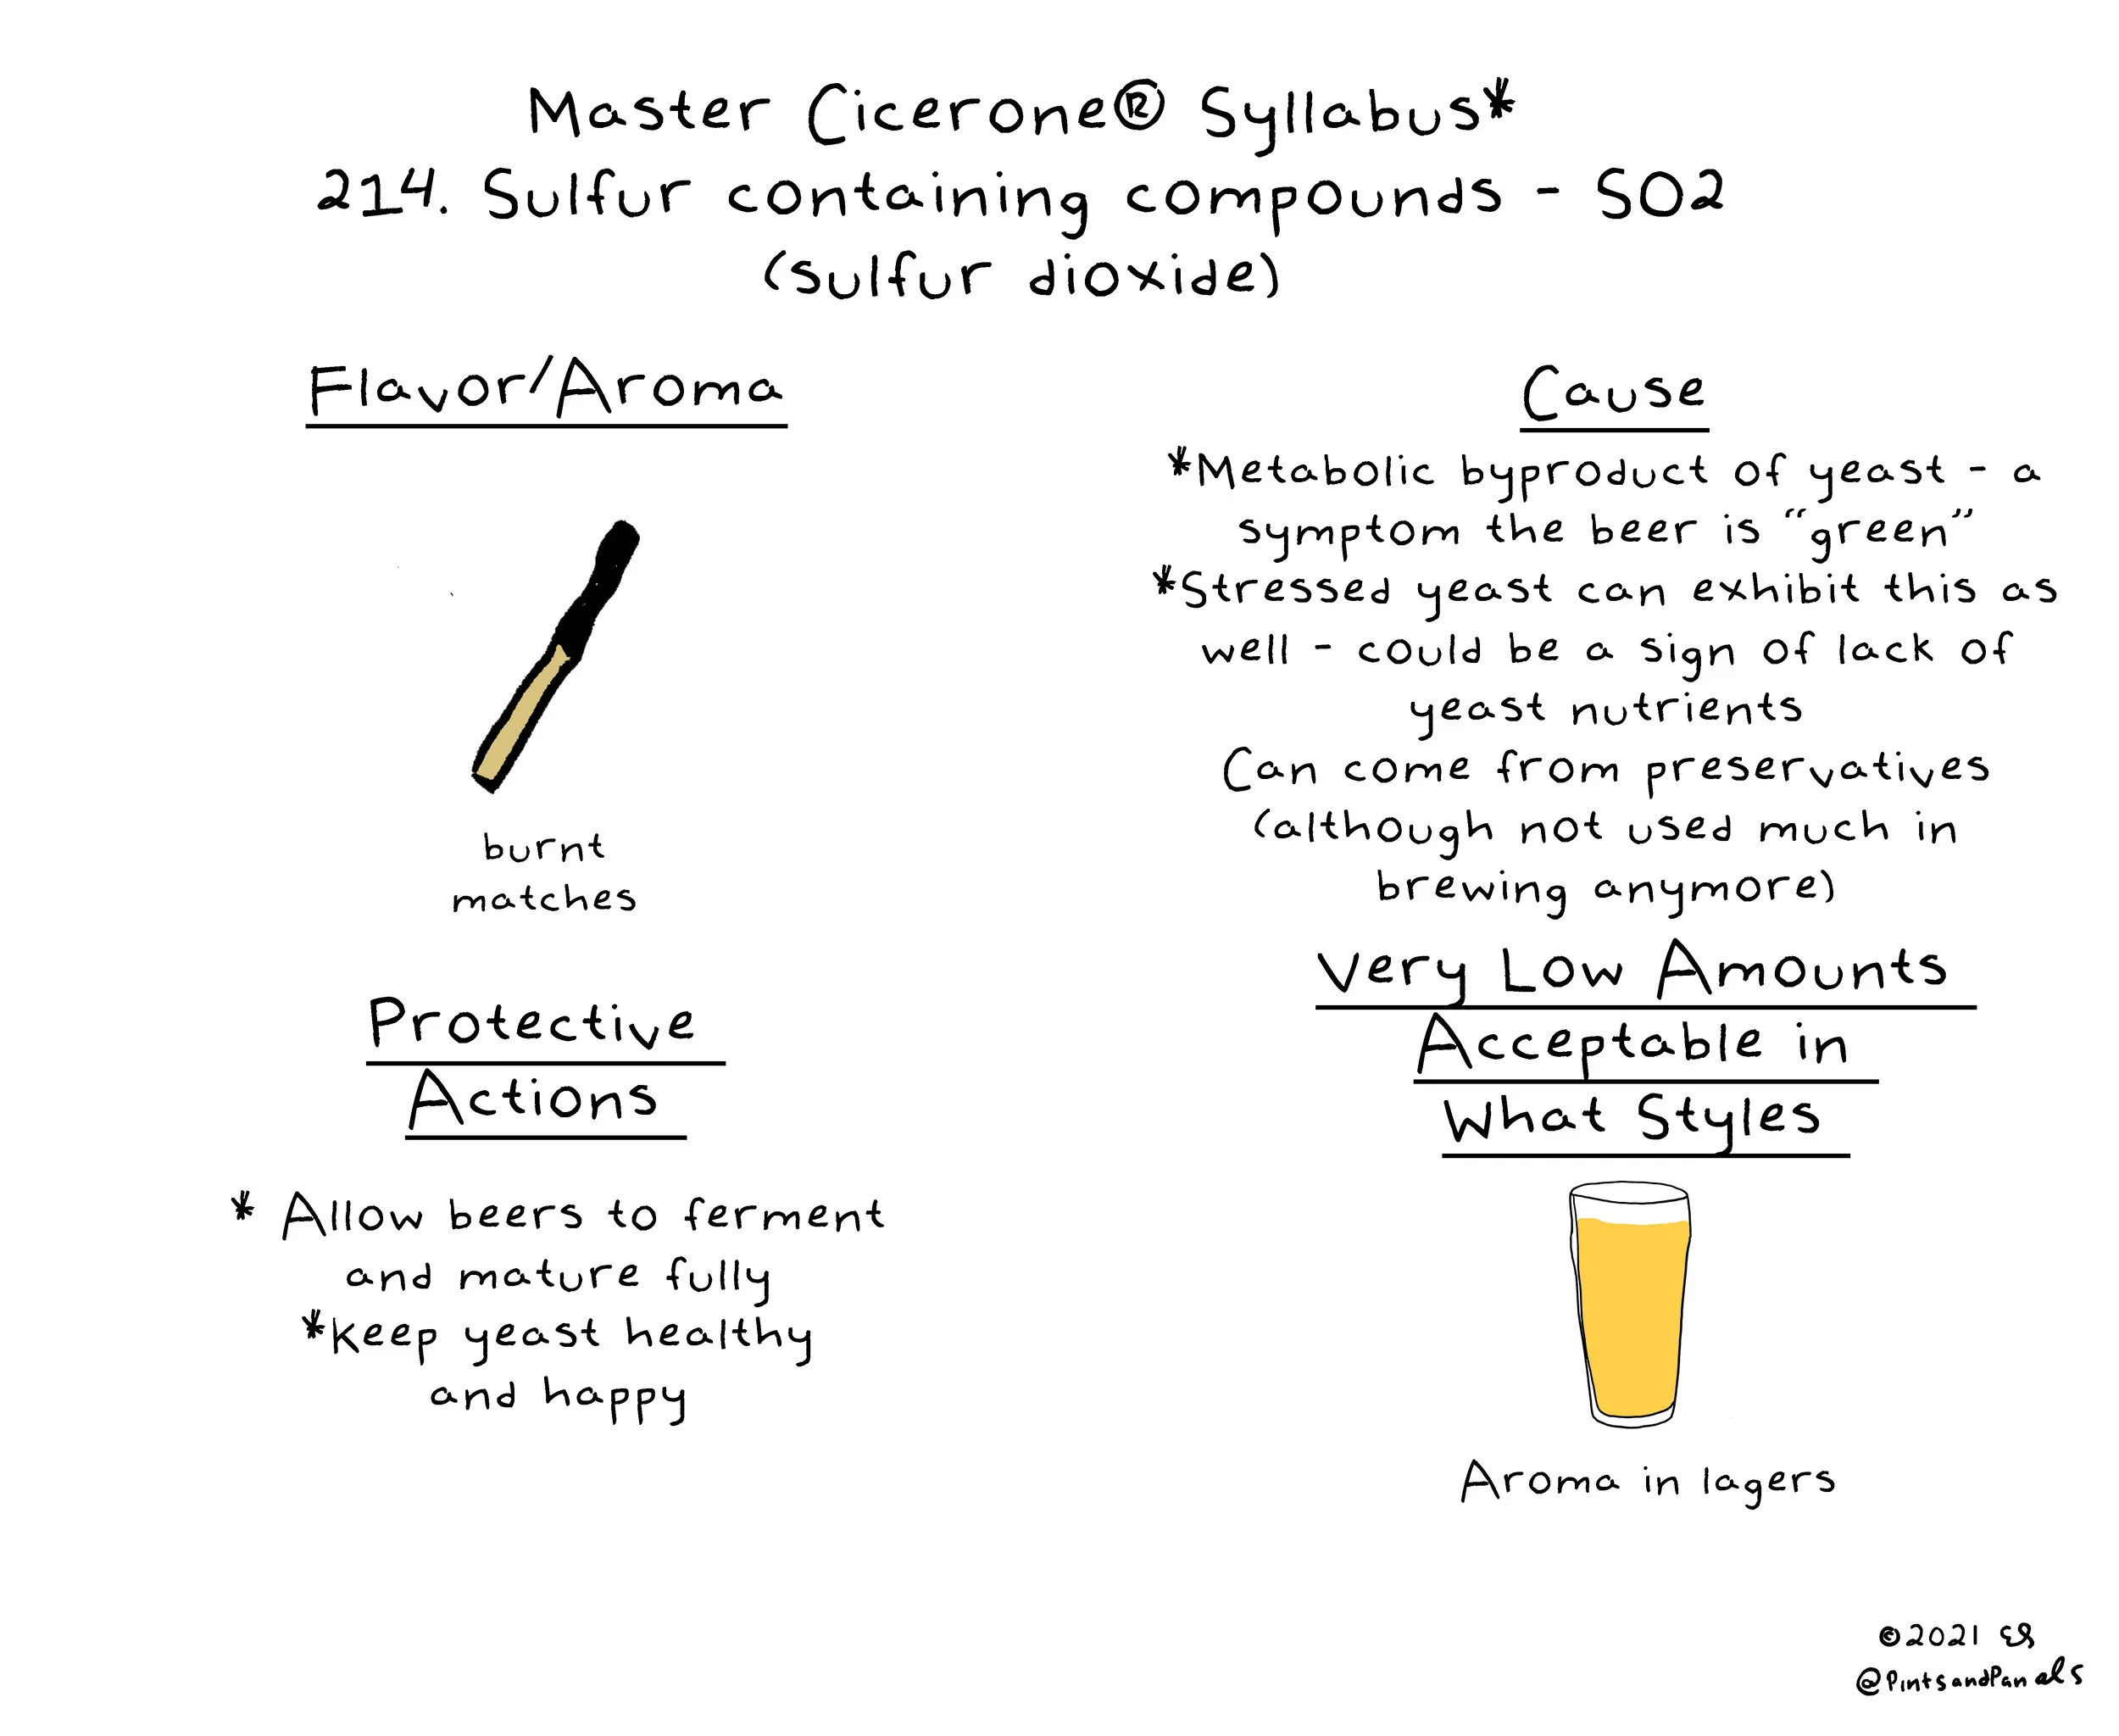 Master Cicerone® Syllabus*
214. Sulfur containing compounds - SO2
(sulfur dioxide)
Flavor/Aroma
burnt
matches
Protective
Actions
* Allow beers to ferment
and mature fully
*keep yeast healthy
and happy
Cause
*Metabolic byproduct of yeast - a
symptom the beer is "green"
*Stressed yeast can exhibit this as
well - could be a sign of lack of
yeast nutrients
Can come from preservatives
(although not used much in
brewing anymore)
Very Low Amounts
Acceptable in
What Styles
Aroma in lagers
©2021
@PintsandPanels